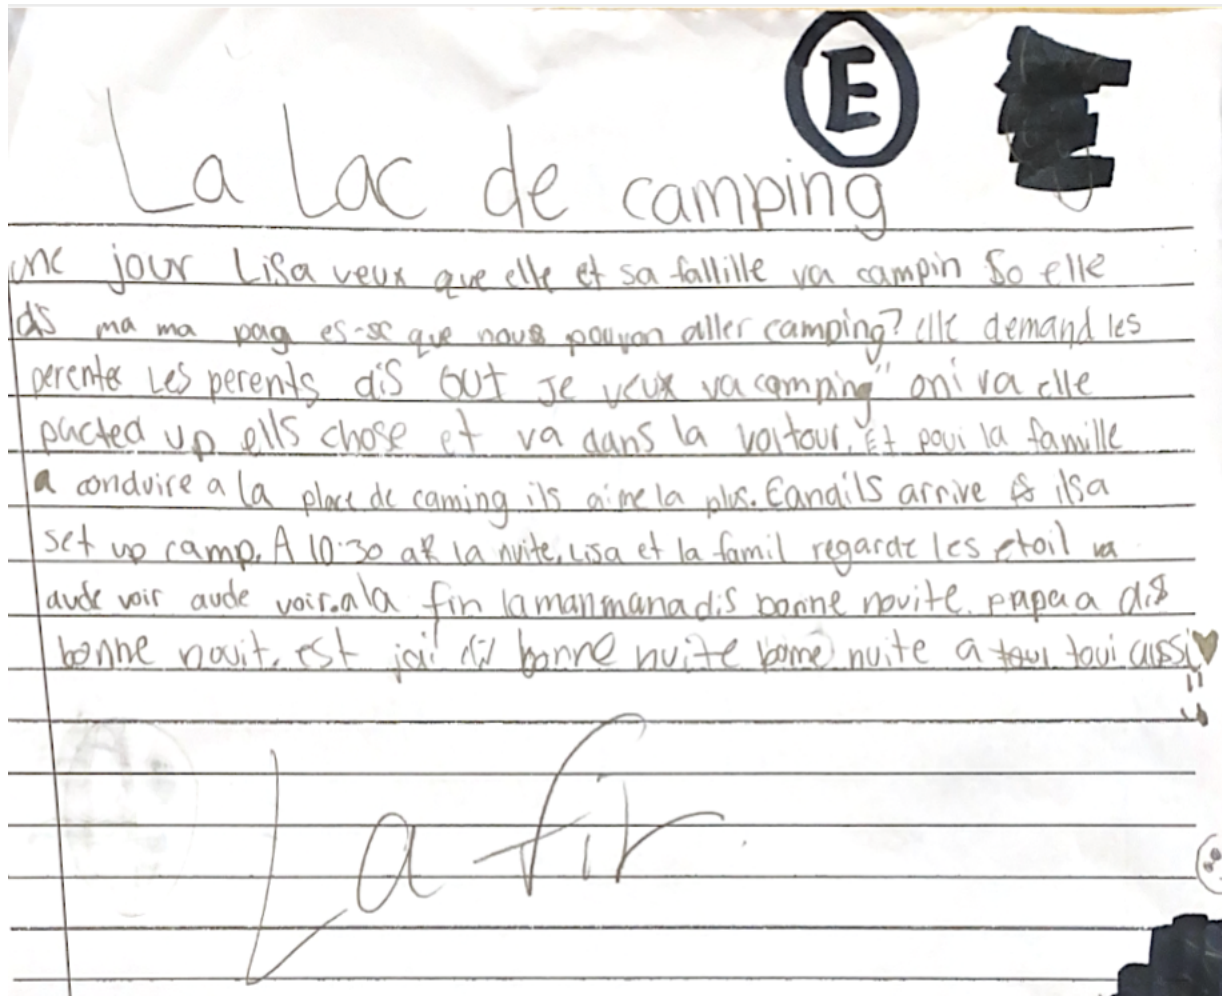 E
La Lac de camping
une jour Lisa veux que elle et sa fallille va campin So elle
dis ma ma pag es-se que nous pouvon aller camping? elle demand les
perentes Les perents dis OUI Je veux va camping" oni va elle
pacted up ells chose et va dans la voitour. Et poui la famille
a conduire a la place de caming ils aime la plus. Eandils arrive ils a
set up camp. A 10:30 la nuite, Lisa et la famil regarde les etoil va
aude voir aude voir. a la fin la manmana dis bonne nouite. papa a dis
bonne nouit. est jai dit bonne nuite bonne nuite a toui toui aussi
La fin